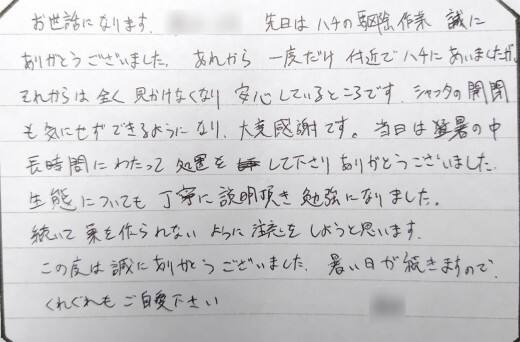 お世話になります。 先日はハチの駆除作業 誠に
ありがとうございました。あれから 一度だけ 付近でハチにあいましたが、
それからは全く見かけなくなり 安心しているところです。シャッタの開閉
も気にせずできるようになり、大変感謝です。当日は猛暑の中
長時間にわたって処置をして下さりありがとうございました。
生態についても丁寧に説明頂き勉強になりました。
続いて巣を作られないように注意をしようと思います。
この度は誠にありがとうございました。暑い日が続きますので、
くれぐれもご自愛下さい